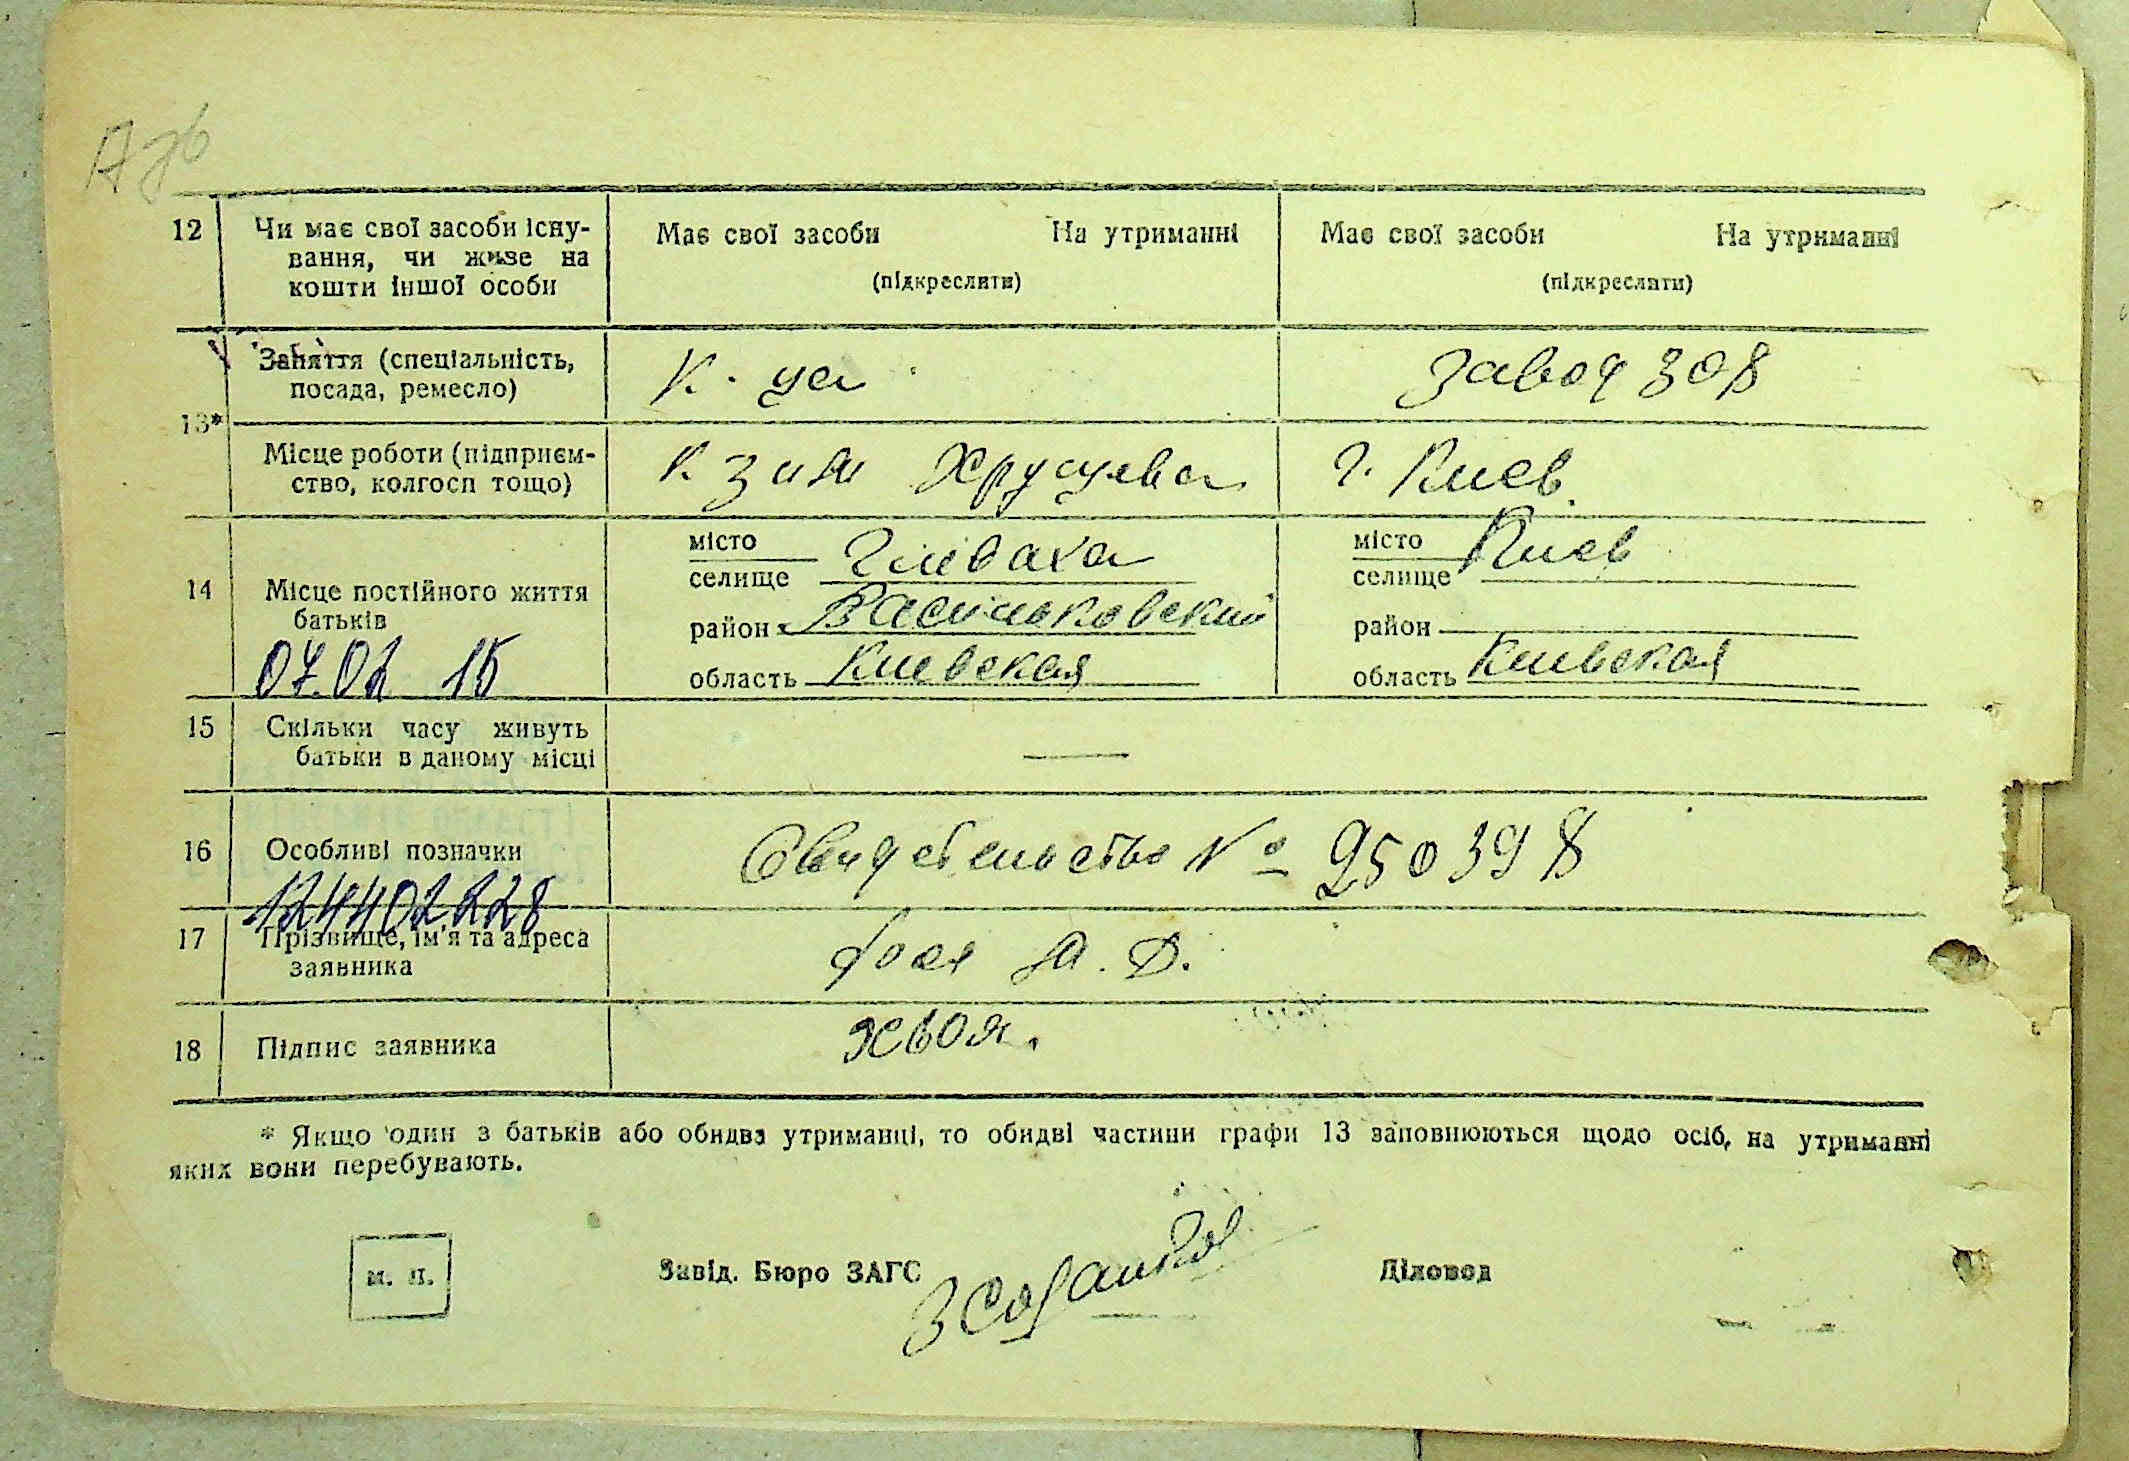 12 Чи має свої засоби існу-
вання, чи живе на
кошти іншої особи
Має свої засоби На утриманні
(підкреслити)
Має свої засоби На утриманні
(підкреслити)
13*
Заняття (спеціальність,
посада, ремесло)
К-ца
Завод 308
Місце роботи (підприєм-
ство, колгосп тощо)
К-з им Хрущева
г. Киев
14 Місце постійного життя
батьків
07.02 15
місто
селище Глеваха
район Васильковский
область Киевская
місто
селище Киев
район
область Киевская
15 Скільки часу живуть
батьки в даному місці
—
16 Особливі позначки
Свидетельство № 950398
124402228
17 Прізвище, ім'я та адреса
заявника
18 Підпис заявника
* Якщо один з батьків або обидва утриманці, то обидві частини графи 13 заповнюються щодо осіб, на утриманні
яких вони перебувають.
м. п.
Завід. Бюро ЗАГС
Діловод